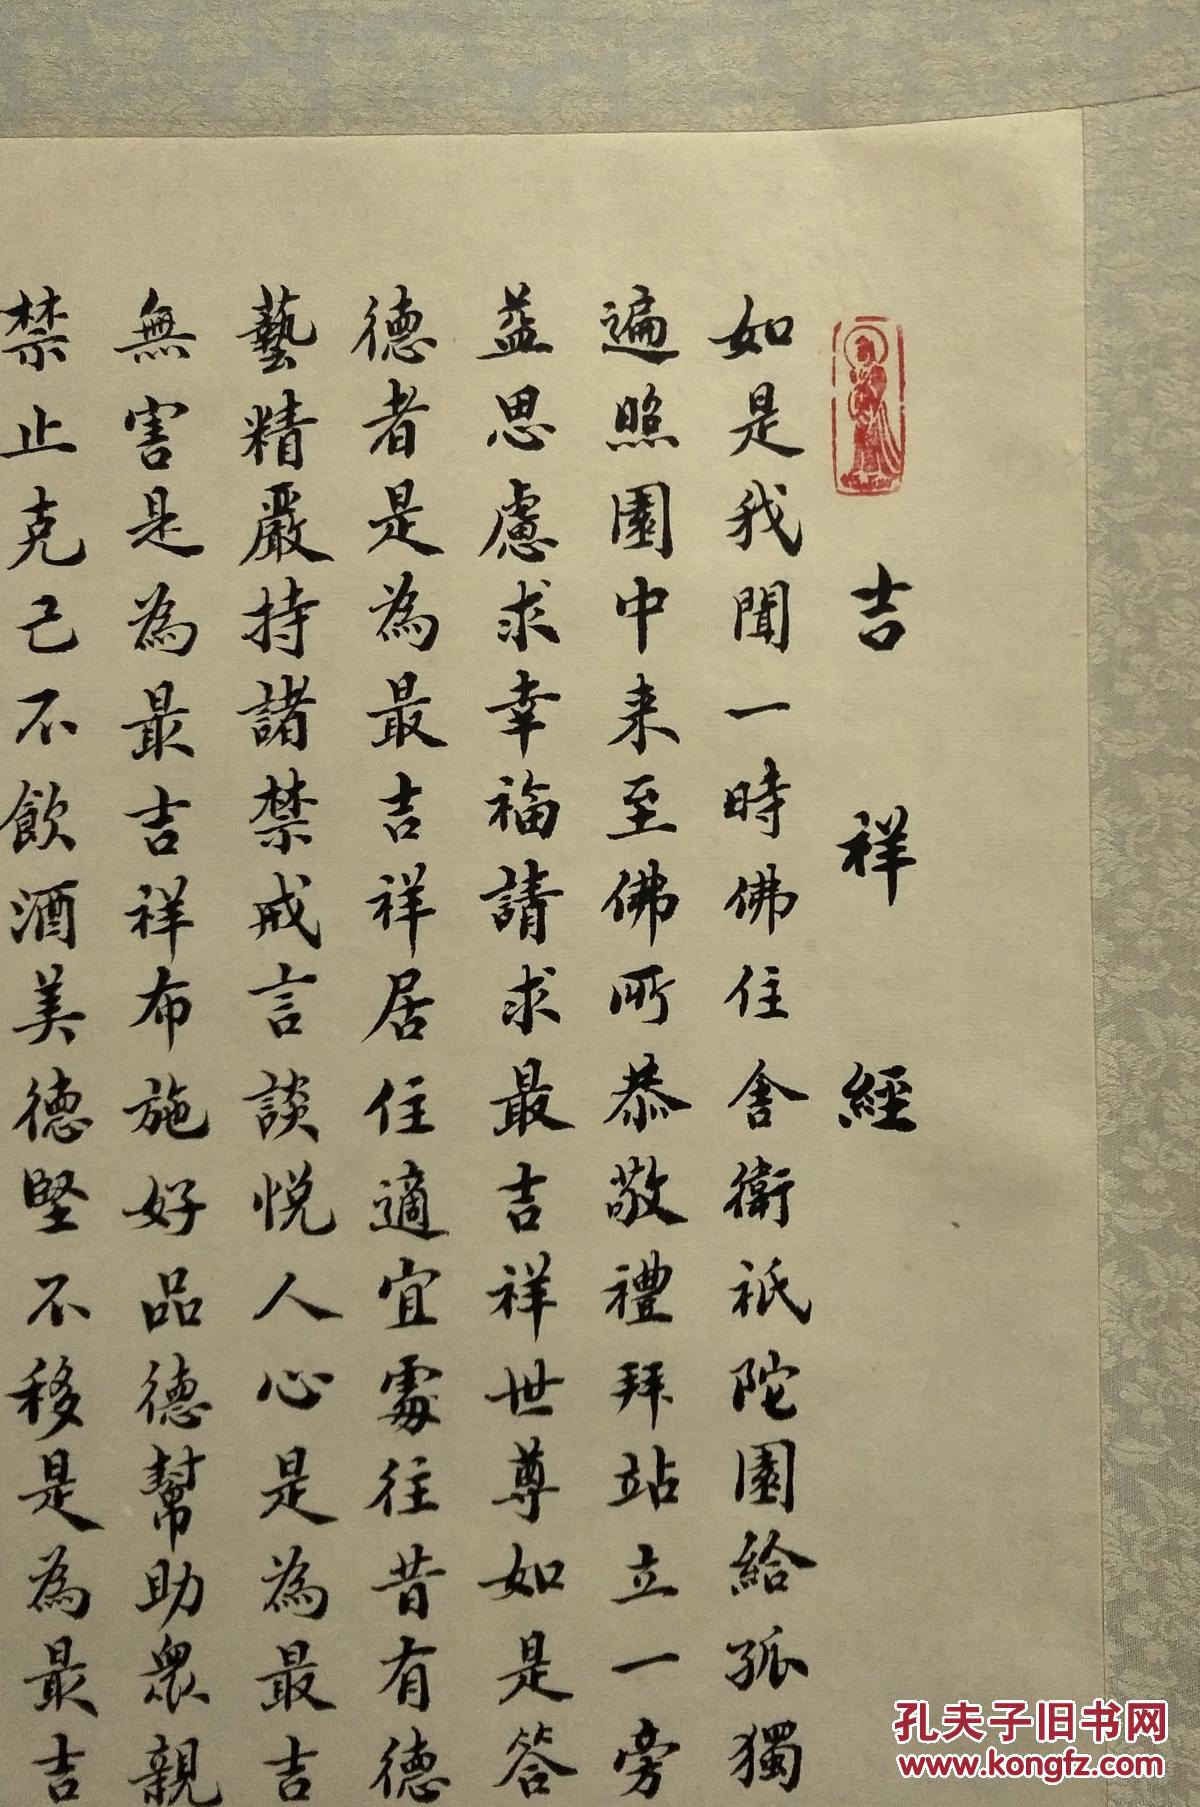 吉祥經
如是我聞一時佛住舍衛祇陀園給孤獨
遍照園中来至佛所恭敬禮拜站立一旁
益思慮求幸福請求最吉祥世尊如是答
德者是為最吉祥居住適宜處往昔有德
藝精嚴持諸禁戒言談悅人心是為最吉
無害是為最吉祥布施好品德幫助眾親
禁止克己不飲酒美德堅不移是為最吉
孔夫子旧书网
www.kongfz.com